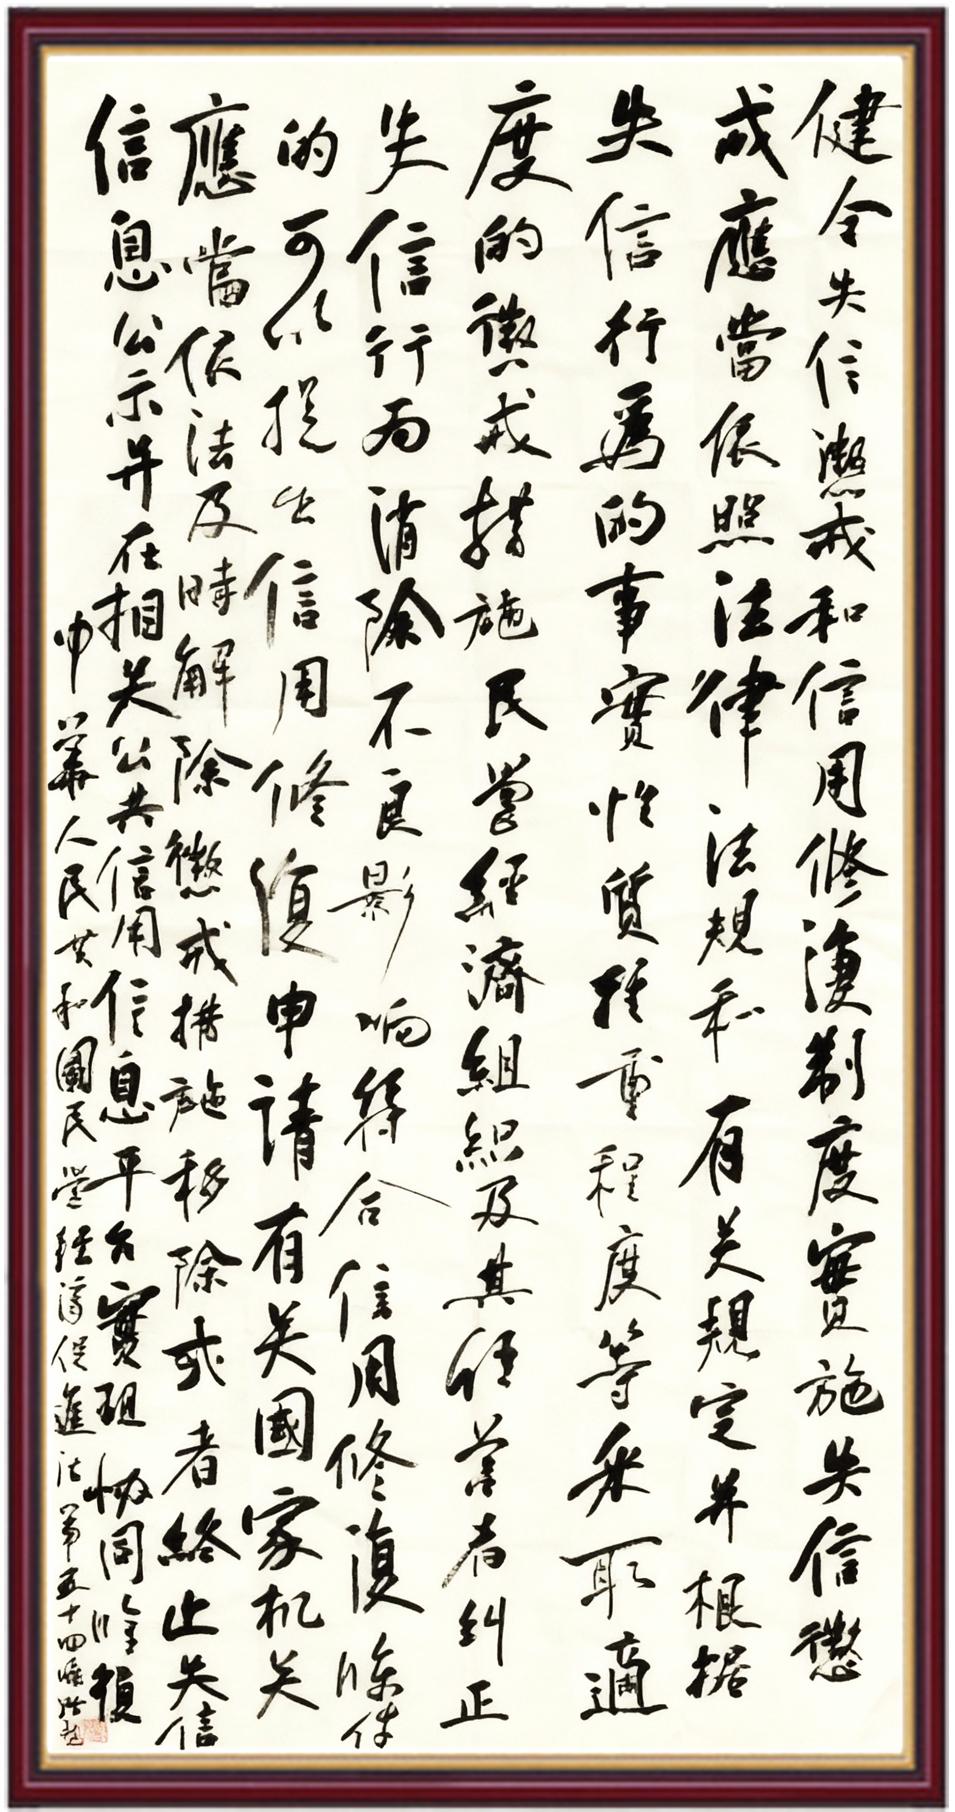 健全失信懲戒和信用修復制度實施失信懲
戒應當依照法律法規和有关規定并根据
失信行爲的事實性質輕重程度等采取適
度的懲戒措施民營經濟組織及其經營者糾正
失信行为消除不良影响符合信用修復條件
的可以提出信用修復申請有关國家机关
應當依法及時解除懲戒措施移除或者終止失信
信息公示并在相关公共信用信息平台實現協同修復
中華人民共和國民營經濟促進法第五十四條